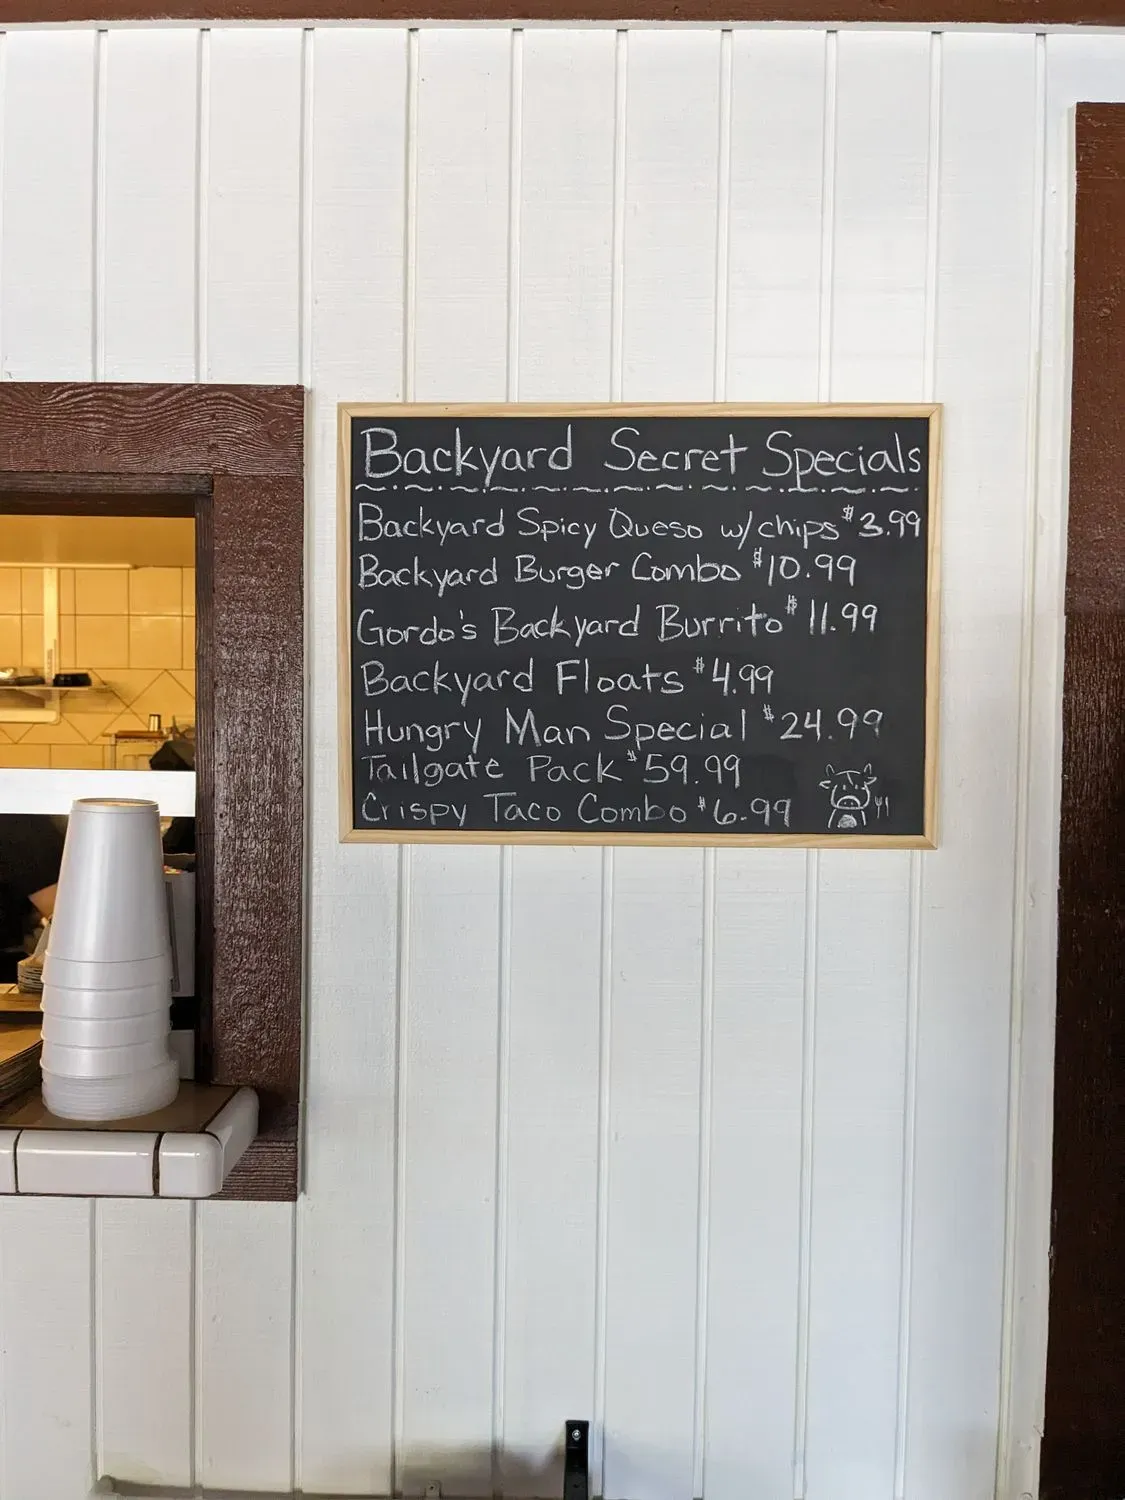 Backyard Secret Specials
Backyard Spicy Queso w/chips $3.99
Backyard Burger Combo $10.99
Gordo's Backyard Burrito $11.99
Backyard Floats $4.99
Hungry Man Special $24.99
Tailgate Pack $59.99
Crispy Taco Combo $6.99